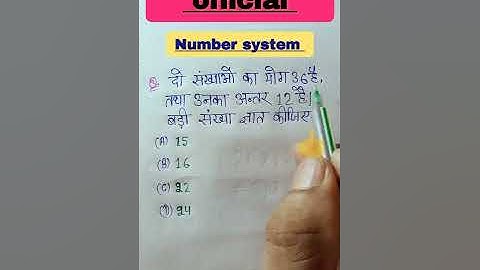 official
Number system
Q. दो संख्याओं का योग 36 है,
तथा उनका अन्तर 12 है।
बड़ी संख्या ज्ञात कीजिए
(A) 15
(B) 16
(C) 22
(D) 24